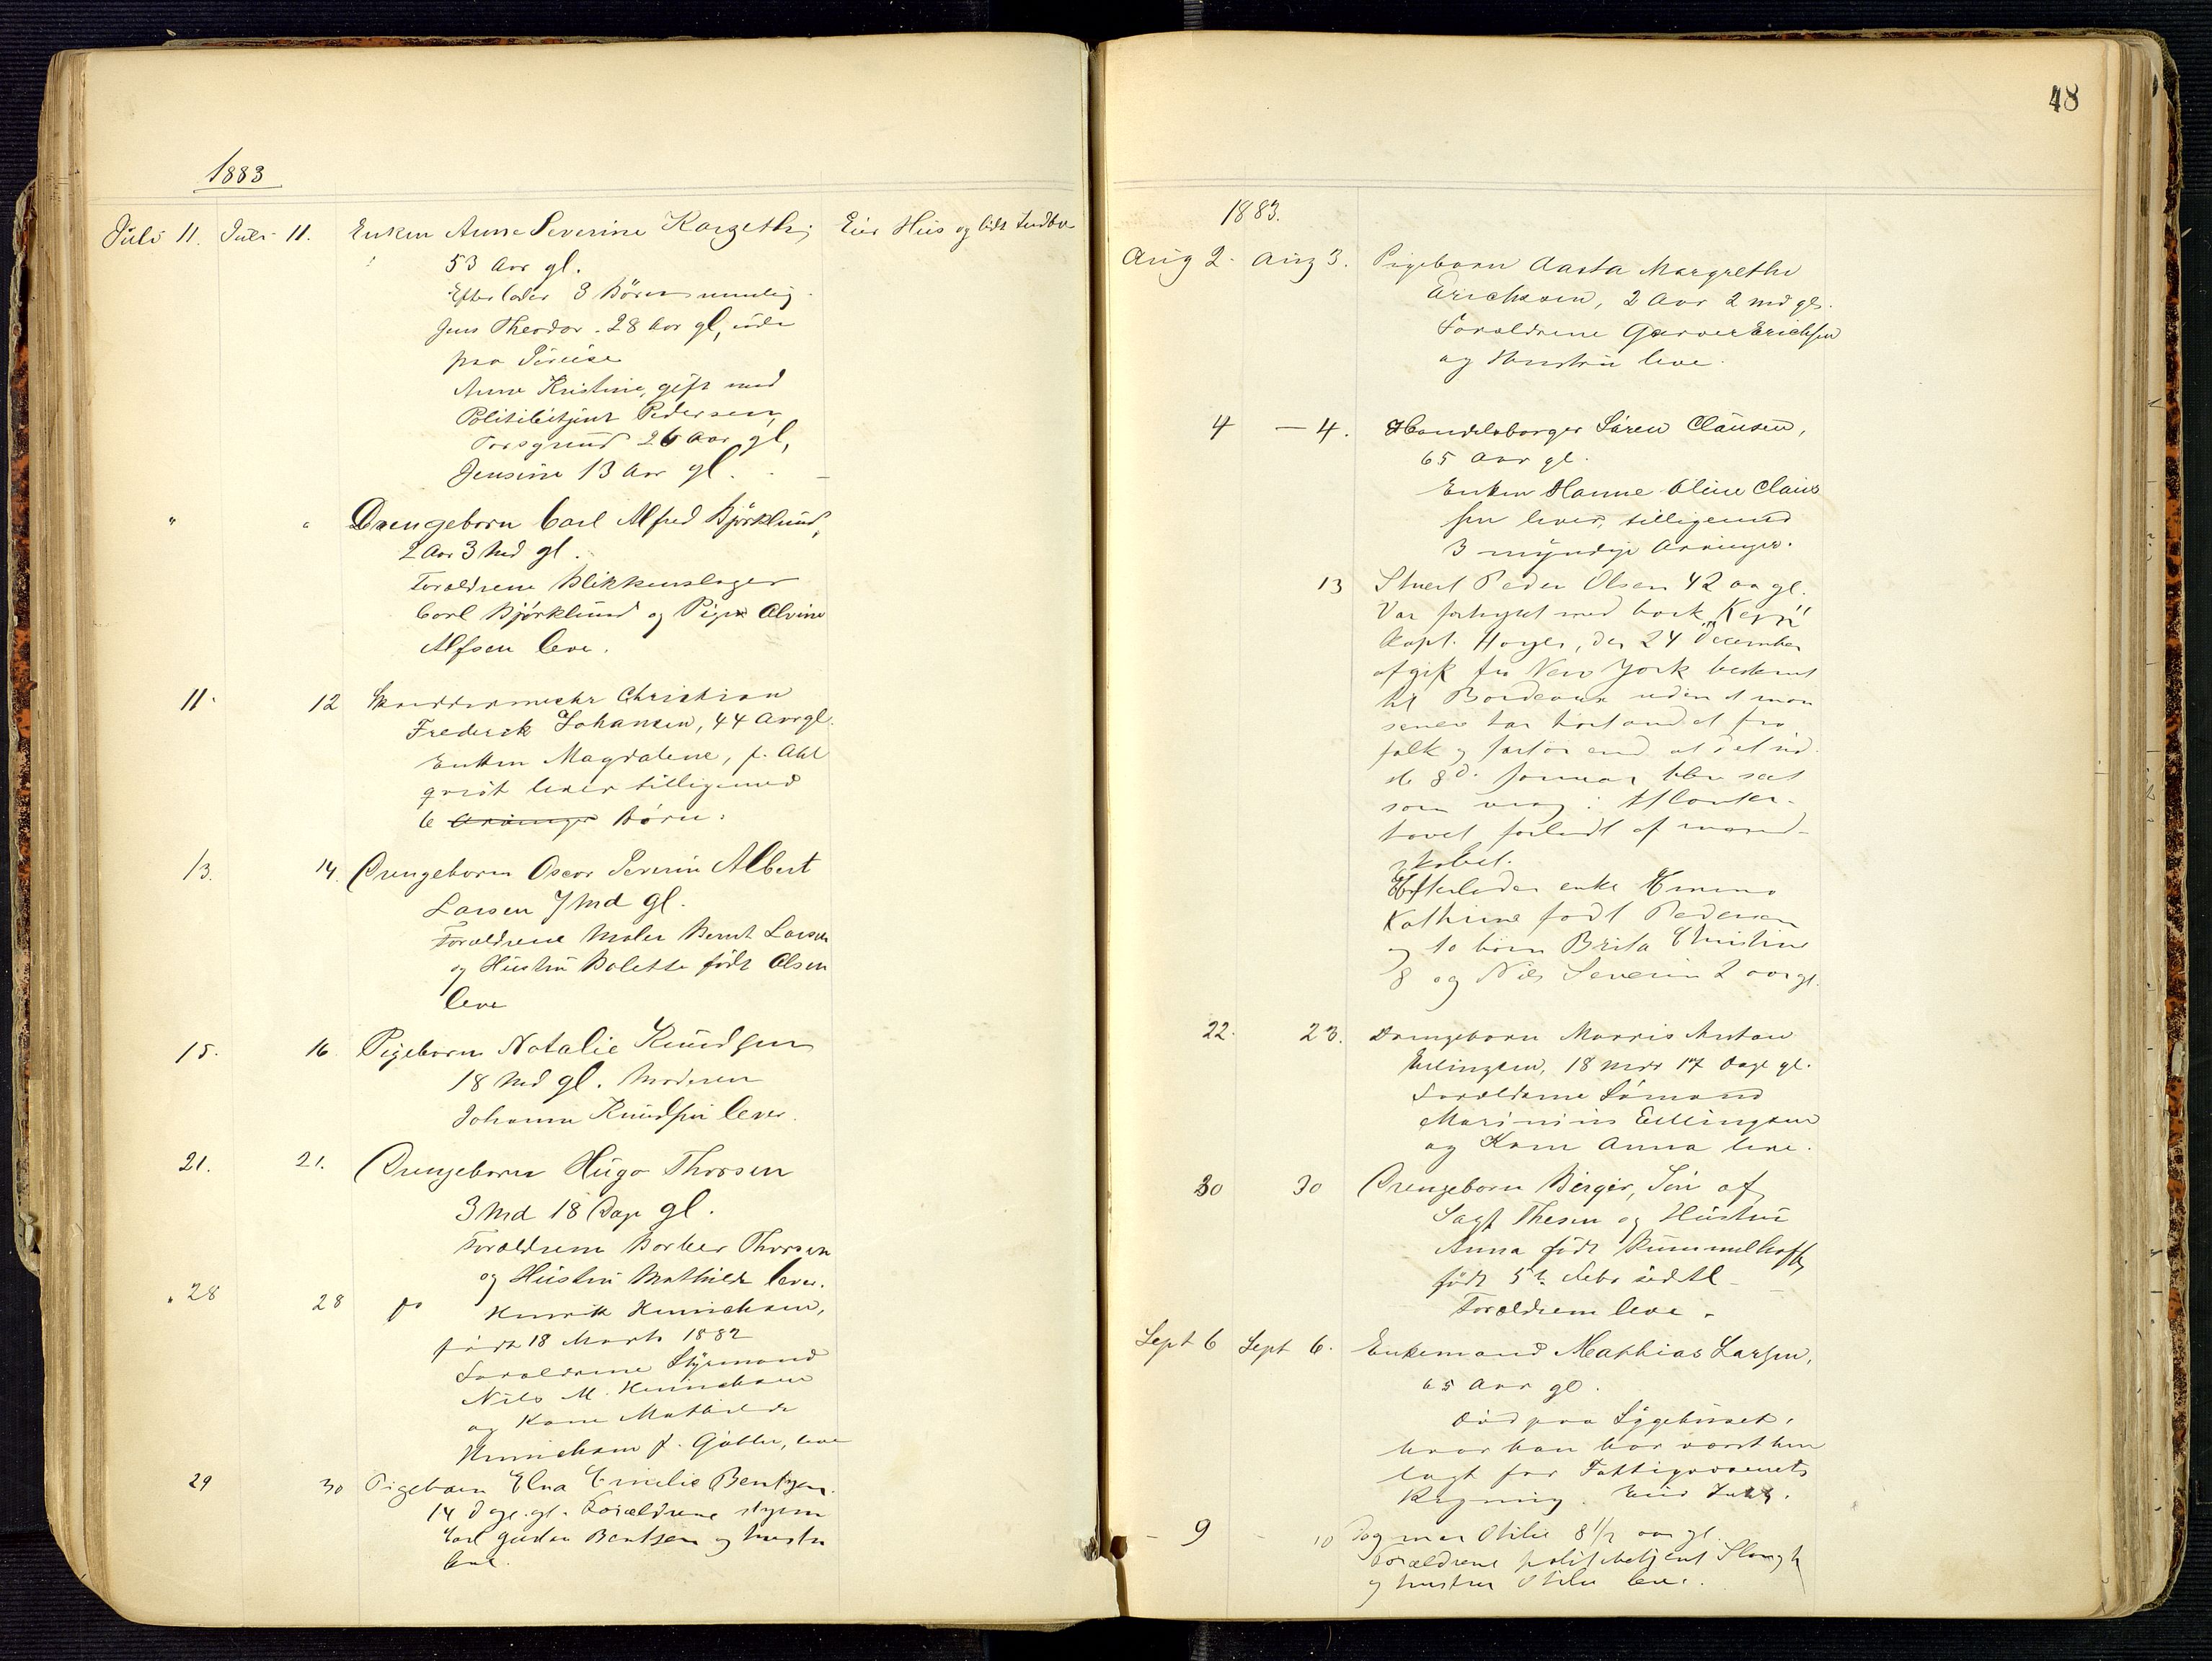 1883
Juli 11. Juli 11. Enken Anne Severine Eier Hus og lidt Indbo
53 Aar gl.
Efterlader 3 Börn nemlig
Jens Theodor 28 Aar gl, ude
paa
Anne Kristine, gift med
Politibetjent Pedersen,
Porsgrund 26 Aar gl,
Jensine 13 Aar gl.
" " Drengebarn Carl Alfred Björklund,
2 Aar 3 Md gl.
Forældrene Blikkenslager
Carl Björklund og Pige Alvine
Alfsen leve.
11. 12 Skræddermester Christian
Frederik Johansen, 44 Aar gl.
Enken Magdalene, f. Ahl
qvist lever tilligemed
6 Arvinger Börn.
13. 14. Drengebarn Oscar Severin Albert
Larsen 7 Md gl.
Forældrene Maler Bernt Larsen
og Hustru Bolette födt Olsen
leve
15. 16. Pigebarn Natalie Knudsen
18 Md gl. Moderen
Johanne Knudsen lever.
21. 21. Drengebarn Hugo Thorsen
3 Md 18 Dage gl.
Forældrene Barber Thorsen
og Hustru Mathilde leve.
28 28 do Henrik Henrichsen,
födt 18 Marts 1882
Forældrene Styrmand
Nils M. Henrichsen
og Kone Mathilde
Henrichsen f. leve
29 30 Pigebarn Elna Emilie Bentzen.
14 dage gl. Forældrene styrm
Carl Gustav Bentsen og hustru
leve.
48
1883.
Aug 2. Aug 3. Pigebarn Aasta Margrethe
Erichsen, 2 Aar 2 md gl.
Forældrene Garver Erichsen
og Hustru leve.
4 — 4. Handelsborger Sören Clausen,
65 Aar gl.
Enken Hanne Oline Clau
sen lever, tilligemed
3 myndige Arvinger.
13 Stuert Peder Olsen 42 aar gl.
Var forhyret med bark
Kapt. der 24 December
afgik fra New York bestemt
til Bordeaux uden at man
senere har hört andet fra
folk og fartöi end at det
d. 8d. Januar blev set
som vrag i Atlanter-
havet forladt af mand-
skabet.
Efterlader enke Emma
Kathrine födt Pedersen
og to börn Brita Christine
8 og Nils Severin 2 aar gl.
22. 23. Drengebarn Morris Anton
Ellingsen, 18 mdr 17 Dage gl.
Forældrene Sömand
Marinius Ellingsen
og Kone Anna leve.
30 30 Drengebarn Birger, Sön af
Sagf Thesen og Hustru
Anna födt Rummelhoff,
födt 5te Febr sidstl
Forældrene leve.
Sept 6 Sept 6. Enkemand Mathias Larsen,
65 Aar gl.
Död paa Sygehuset,
hvor han har været hen
lagt for Fattigvæsenets
Regning. Eier Intet.
– 9 – 10 Dagmar Otilie 8 1/2 aar gl.
Forældrene politibetjent
og hustru Otilie leve.